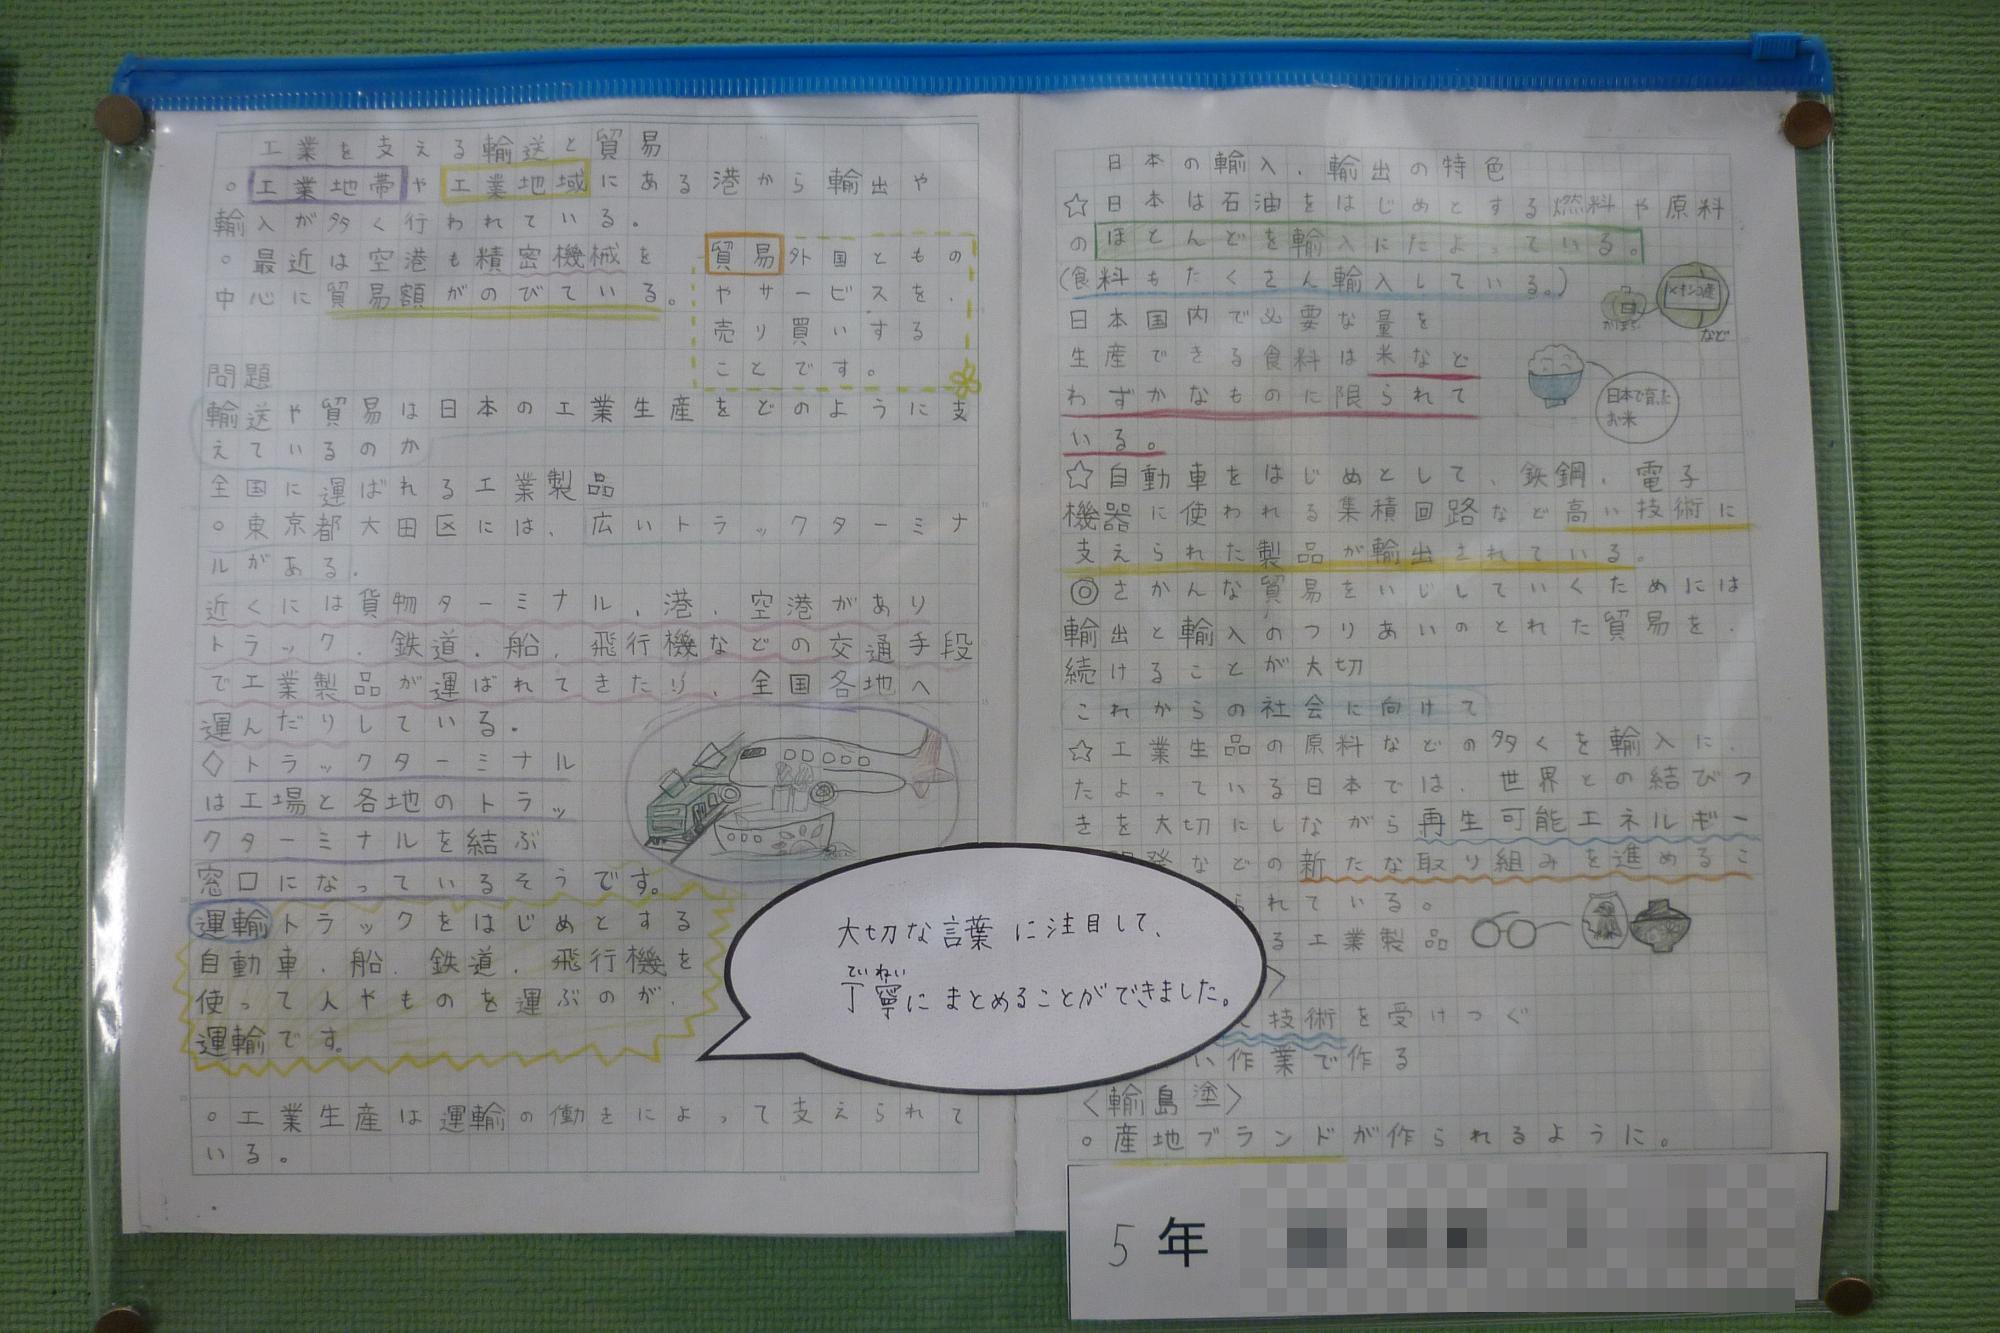 工業を支える輸送と貿易
○工業地帯や工業地域にある港から輸出や
輸入が多く行われている。
○最近は空港も精密機械を
中心に貿易額がのびている。
貿易外国ともの
やサービスを、
売り買いする
ことです。
問題
輸送や貿易は日本の工業生産をどのように支
えているのか
全国に運ばれる工業製品
○東京都大田区には、広いトラックターミナ
ルがある。
近くには貨物ターミナル、港、空港があり
トラック、鉄道、船、飛行機などの交通手段
で工業製品が運ばれてきたり、全国各地へ
運んだりしている。
◇トラックターミナル
は工場と各地のトラッ
クターミナルを結ぶ
窓口になっているそうです。
運輸トラックをはじめとする
自動車、船、鉄道、飛行機を
使って人やものを運ぶのが、
運輸です。
○工業生産は運輸の働きによって支えられて
いる。
大切な言葉に注目して、
ていねい
丁寧にまとめることができました。
日本の輸入、輸出の特色
☆日本は石油をはじめとする燃料や原料
のほとんどを輸入にたよっている。
(食料もたくさん輸入している。)
など
日本国内で必要な量を
生産できる食料は米など
わずかなものに限られて
いる。
日本で育った
お米
☆自動車をはじめとして、鉄鋼、電子
機器に使われる集積回路など高い技術に
支えられた製品が輸出されている。
◎さかんな貿易をいじしていくためには
輸出と輸入のつりあいのとれた貿易を、
続けることが大切
これからの社会に向けて
☆工業生品の原料などの多くを輸入に、
たよっている日本では、世界との結びつ
きを大切にしながら再生可能エネルギー
発などの新たな取り組みを進めるこ
られている。
る工業製品
〉
技術を受けつぐ
い作業で作る
〈輪島塗〉
○産地ブランドが作られるように。
5年